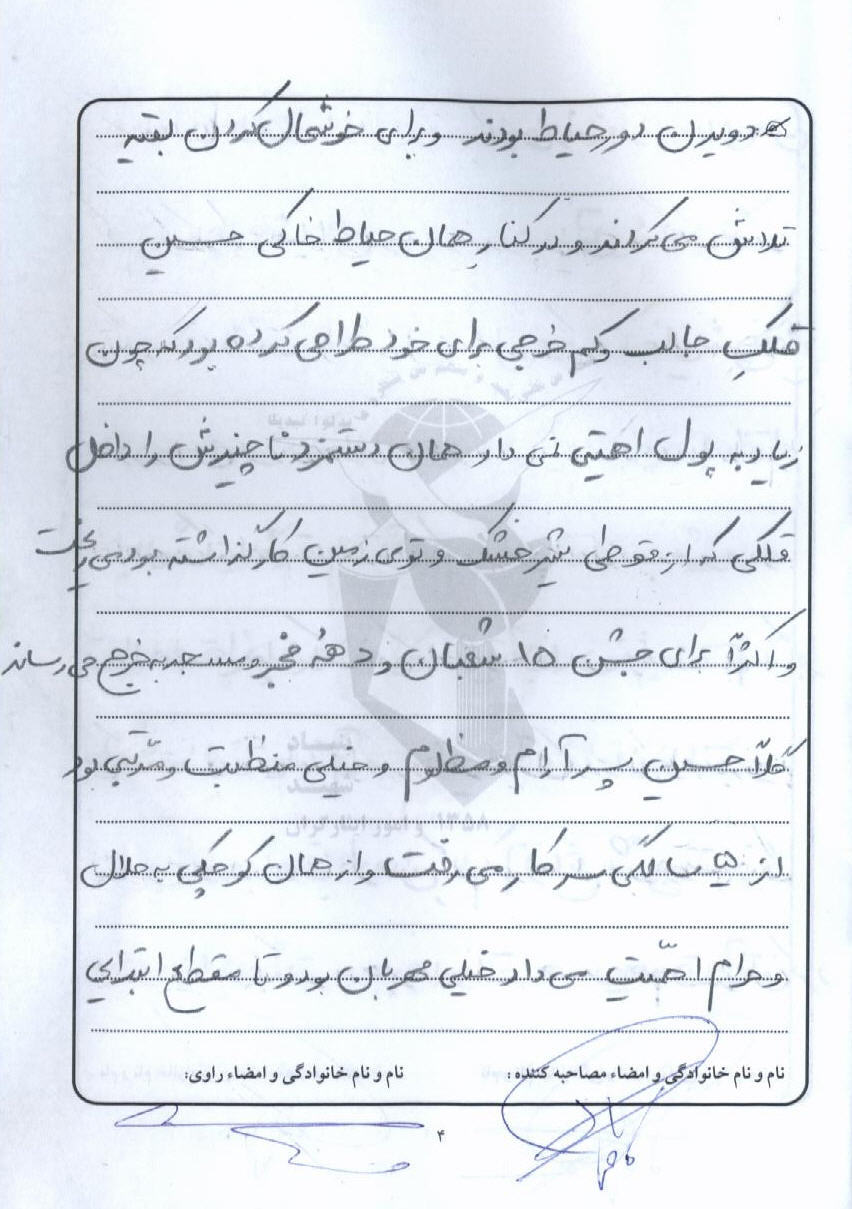 که دویدن دور حیاط بودند و برای خوشحال کردن بقیه
تلاش می کردند و در کنار همان حیاط خاکی حسین
قلکِ جالب و کم خرجی برای خود طراحی کرده بود که چون
زیاد به پول اهمیتی نمی داد همان دستمزد ناچیزش را داخل
قلکی که از قوطی شیر خشک و توی زمین کار گذاشته بود می ریخت
و اکثراً برای جشن ۱۵ شعبان و دههٔ فجر و مسجد به خرج می رساند
کلاً حسین پسر آرام و مظلوم و خیلی منظبت و مرتبی بود
از ۵ سالگی سر کار می رفت و از همان کوچکی به حلال
و حرام اهمّیت می داد خیلی مهربان بود و تا مقطع ابتدایی
نام و نام خانوادگی و امضاء مصاحبه کننده: نام و نام خانوادگی و امضاء راوی:
۴
بنیاد
شهید
و امور ایثارگران
۱۳۵۸